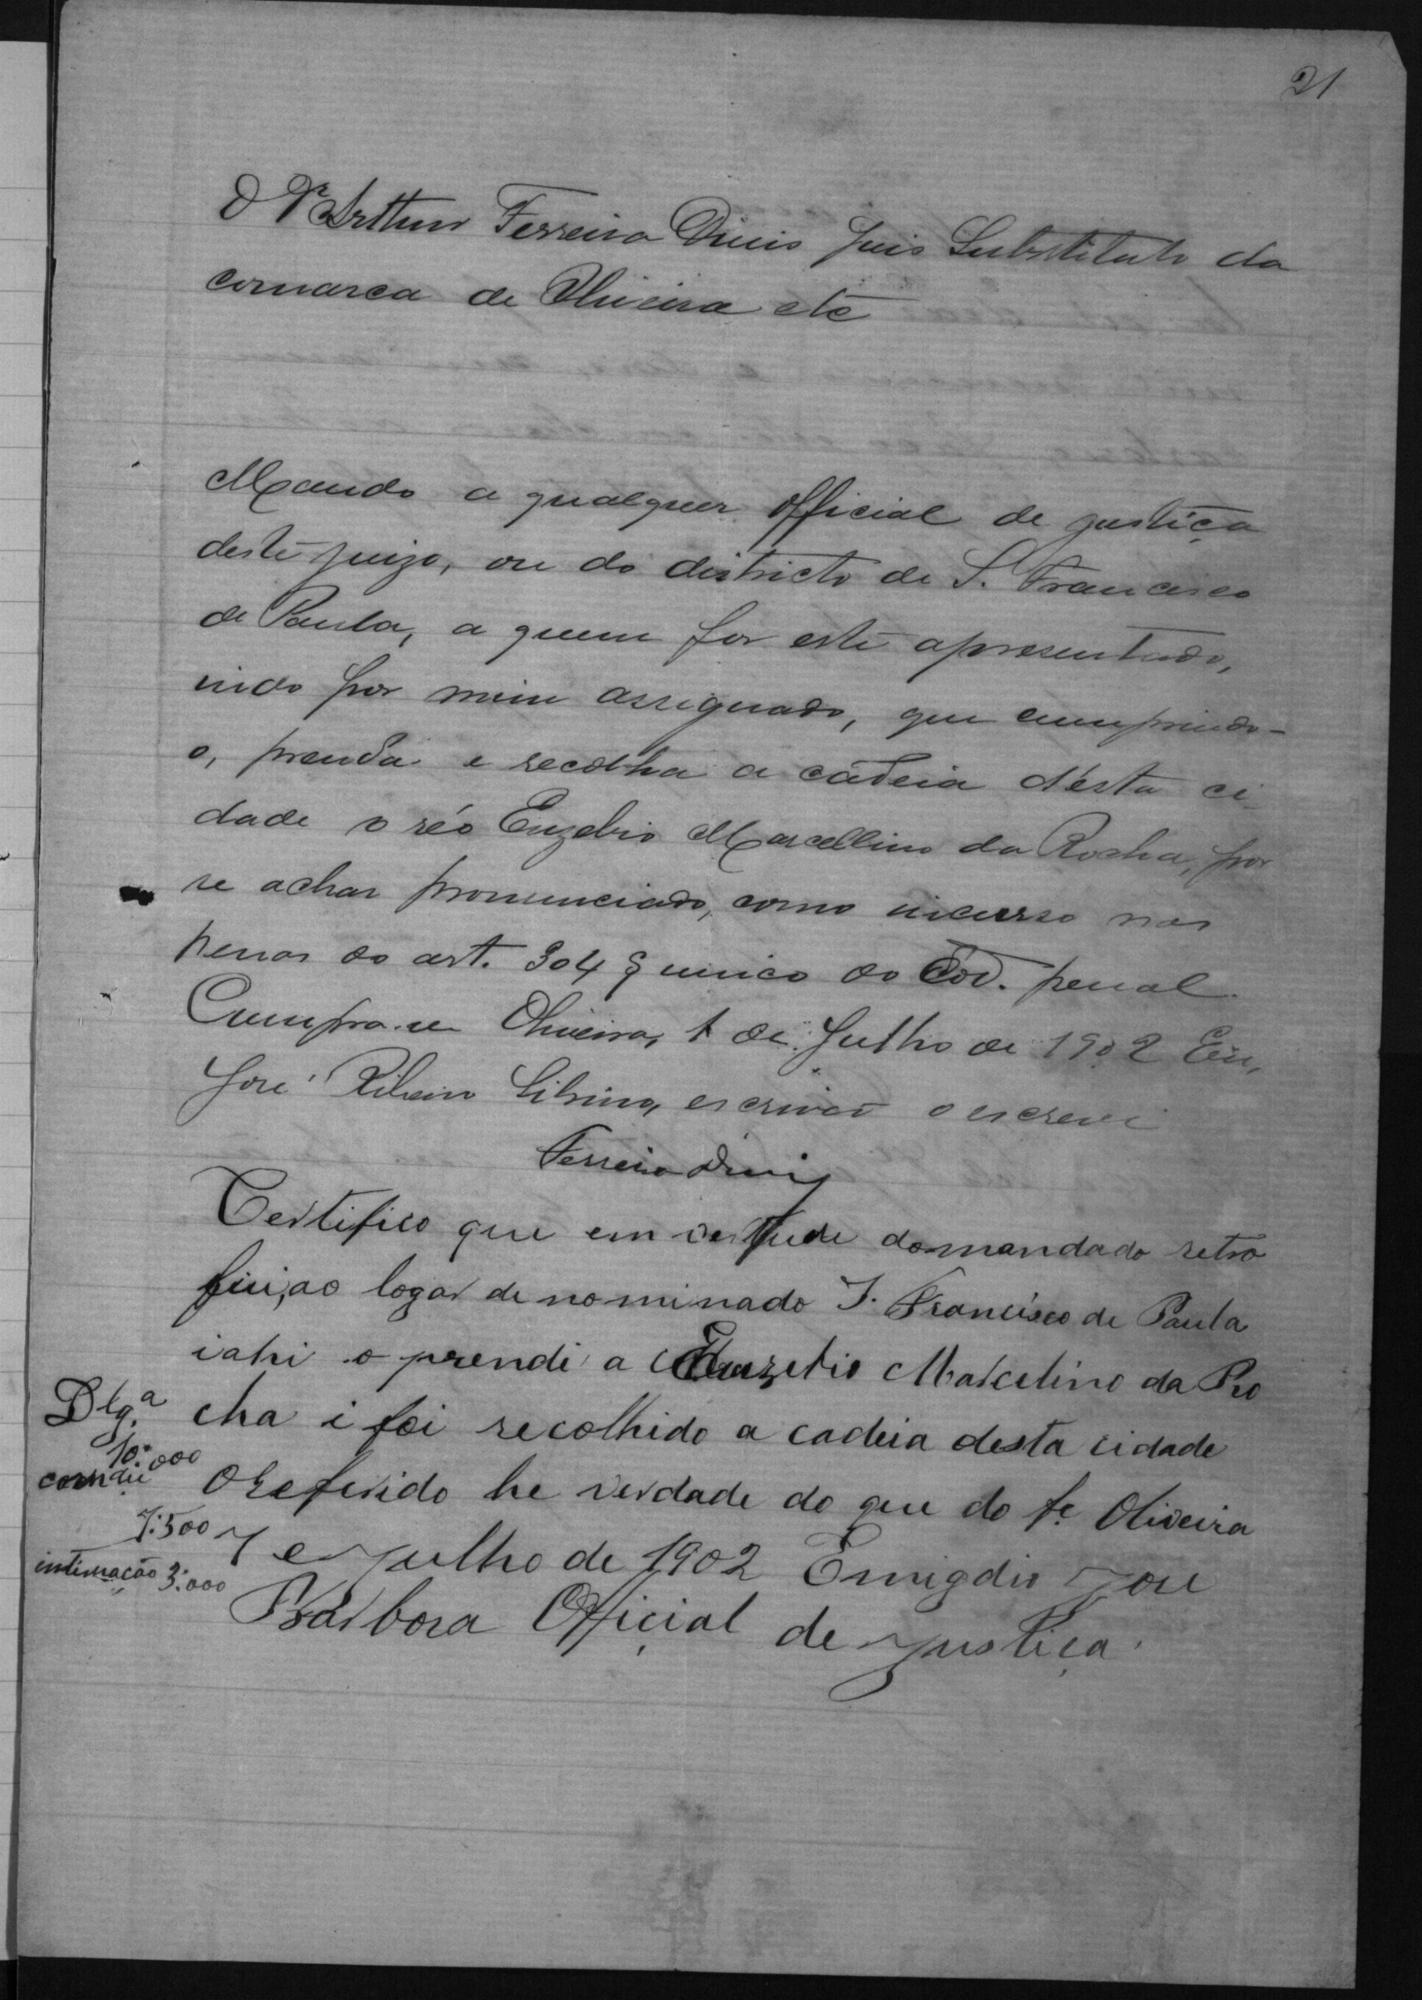 21
O Dr Arthur Ferreira Dinis Juis Substituto da
comarca de Oliveira etc
Mando a qualquer official de justiça
deste juizo, ou do districto de S. Francisco
de Paula, a quem for este apresentado,
indo por mim assignado, que cumprindo-
o, prenda e recolha a cadeia désta ci-
dade o réo Euzebio Marcellino da Rocha, por
se achar pronunciado, como incurso nas
penas do art. 304 § unico do Cod. penal.
Cumpra-se Oliveira, 1 de Julho de 1902 Eu,
José Ribeiro escrivão o escrevi
Ferreira Dinis
Certifico que em vertude do mandado retro
fui, ao logar denominado S. Francisco de Paula
i ahi o prendi a Euzebio Marcelino da Ro
Dlg.ª cha i foi recolhido a cadeia desta cidade
10:000
O referido he verdade do que do fe Oliveira
7:500 7 e Julho de 1902 Emigdio Jose
intimação 3:000
Barbosa Oficial de Justiça.